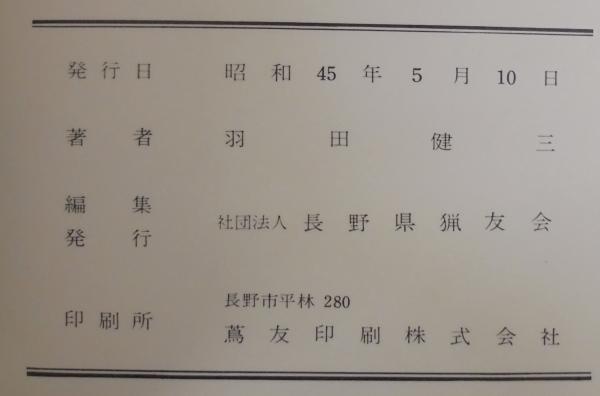 発行日 昭和45年5月10日
著者 羽田健三
編集
発行 社団法人 長野県猟友会
長野市平林 280
印刷所 蔦友印刷株式会社